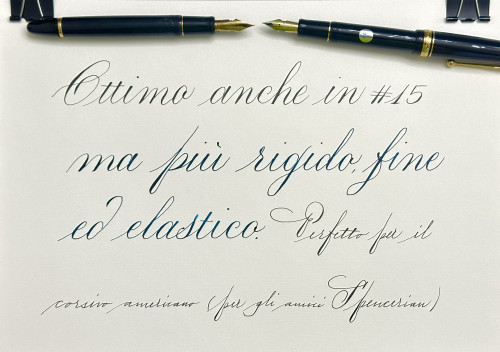 Ottimo anche in #15
ma più rigido, fine
ed elastico. Perfetto per il
corsivo americano (per gli amici Spencerian)